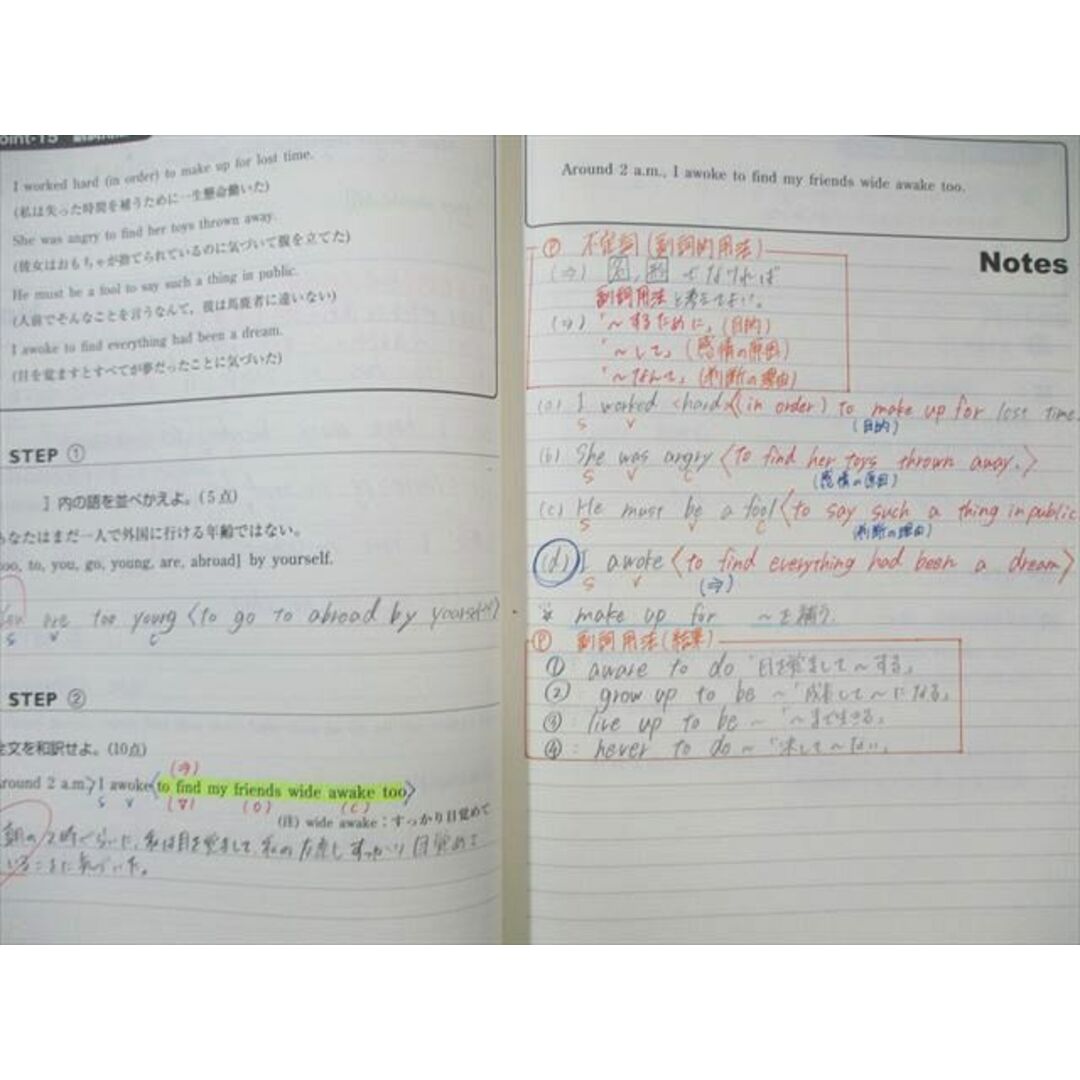 I worked hard (in order) to make up for lost time.
(私は失った時間を補うために一生懸命働いた)
She was angry to find her toys thrown away.
(彼女はおもちゃが捨てられているのに気づいて腹を立てた)
He must be a fool to say such a thing in public.
(人前でそんなことを言うなんて，彼は馬鹿者に違いない)
I awoke to find everything had been a dream.
(目を覚ますとすべてが夢だったことに気づいた)
STEP ①
］内の語を並べかえよ。(5点)
なたはまだ一人で外国に行ける年齢ではない。
oo, to, you, go, young, are, abroad] by yourself.
You are too young 〈to go to abroad by yourself〉
S V C
STEP ②
文を和訳せよ。(10点)
(⇒)
round 2 a.m.〉I awoke〈to find my friends wide awake too〉
S V (V) (O) (C)
(注) wide awake：すっかり目覚めて
朝の2時ぐらいに，私は目を覚まして，私の友達もすっかり目覚めて
いることに気づいた。
Around 2 a.m., I awoke to find my friends wide awake too.
Notes
Ⓟ 不定詞(副詞的用法)
(⇒) 名, 形 でなければ
副詞用法と考えてよい。
(⇒)「～するために」(目的)
「～して」(感情の原因)
「～なんて」(判断の理由)
(a) I worked <hard>〈(in order) to make up for lost time.
S V (目的)
(b) She was angry〈to find her toys thrown away.〉
S V C (感情の原因)
(c) He must be a fool〈to say such a thing in public
S V C (判断の理由)
(d) I awoke〈to find everything had been a dream〉
S V (⇒)
※ make up for ～を補う
Ⓟ 副詞用法(結果)
① aware to do「目を覚まして～する」
② grow up to be ～「成長して～になる」
③ live up to be ～「～まで生きる」
④ : never to do ～「決して～ない」